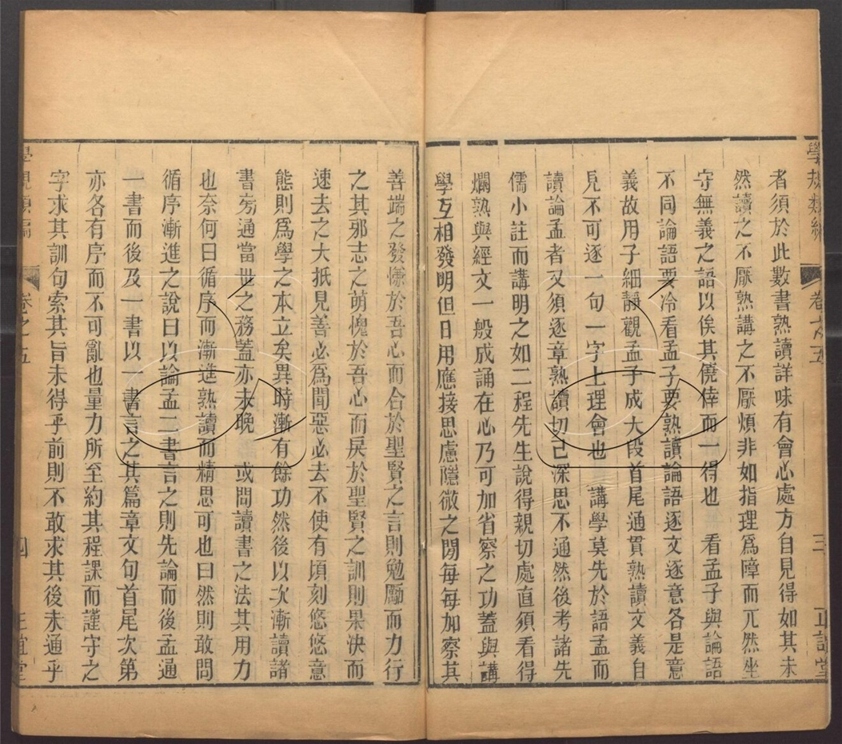 者須於此數書熟讀詳味有會心處方自見得如其未
然讀之不厭熟講之不厭煩非如指理爲障而兀然坐
守無義之語以俟其僥倖而一得也 看孟子與論語
不同論語要冷看孟子要熟讀論語逐文逐意各是意
義故用子細靜觀孟子成大段首尾通貫熟讀文義自
見不可逐一句一字上理會也 講學莫先於語孟而
讀論孟者又須逐章熟讀切己深思不通然後考諸先
儒小註而講明之如二程先生說得親切處直須看得
爛熟與經文一般成誦在心乃可加省察之功蓋與講
學互相發明但日用應接思慮隱微之間每每加察其
善端之發慊於吾心而合於聖賢之言則勉勵而力行
之其邪志之萌愧於吾心而戾於聖賢之訓則果決而
速去之大抵見善必爲聞惡必去不使有頃刻悠悠意
態則爲學之本立矣異時漸有餘功然後以次漸讀諸
書旁通當世之務蓋亦未晚 或問讀書之法其用力
也奈何曰循序而漸進熟讀而精思可也曰然則敢問
循序漸進之說曰以論孟二書言之則先論而後孟通
一書而後及一書以一書言之其篇章文句首尾次第
亦各有序而不可亂也量力所至約其程課而謹守之
字求其訓句索其旨未得乎前則不敢求其後未通乎
卷之五
四
正誼堂